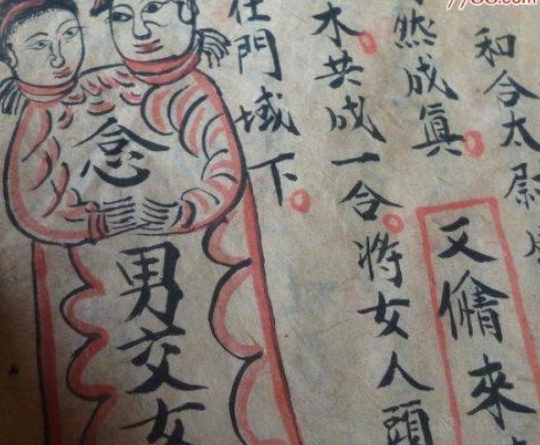 和合太尉
又脩來
然成眞
木共成一合将女人頭
在門域下
念
男交女